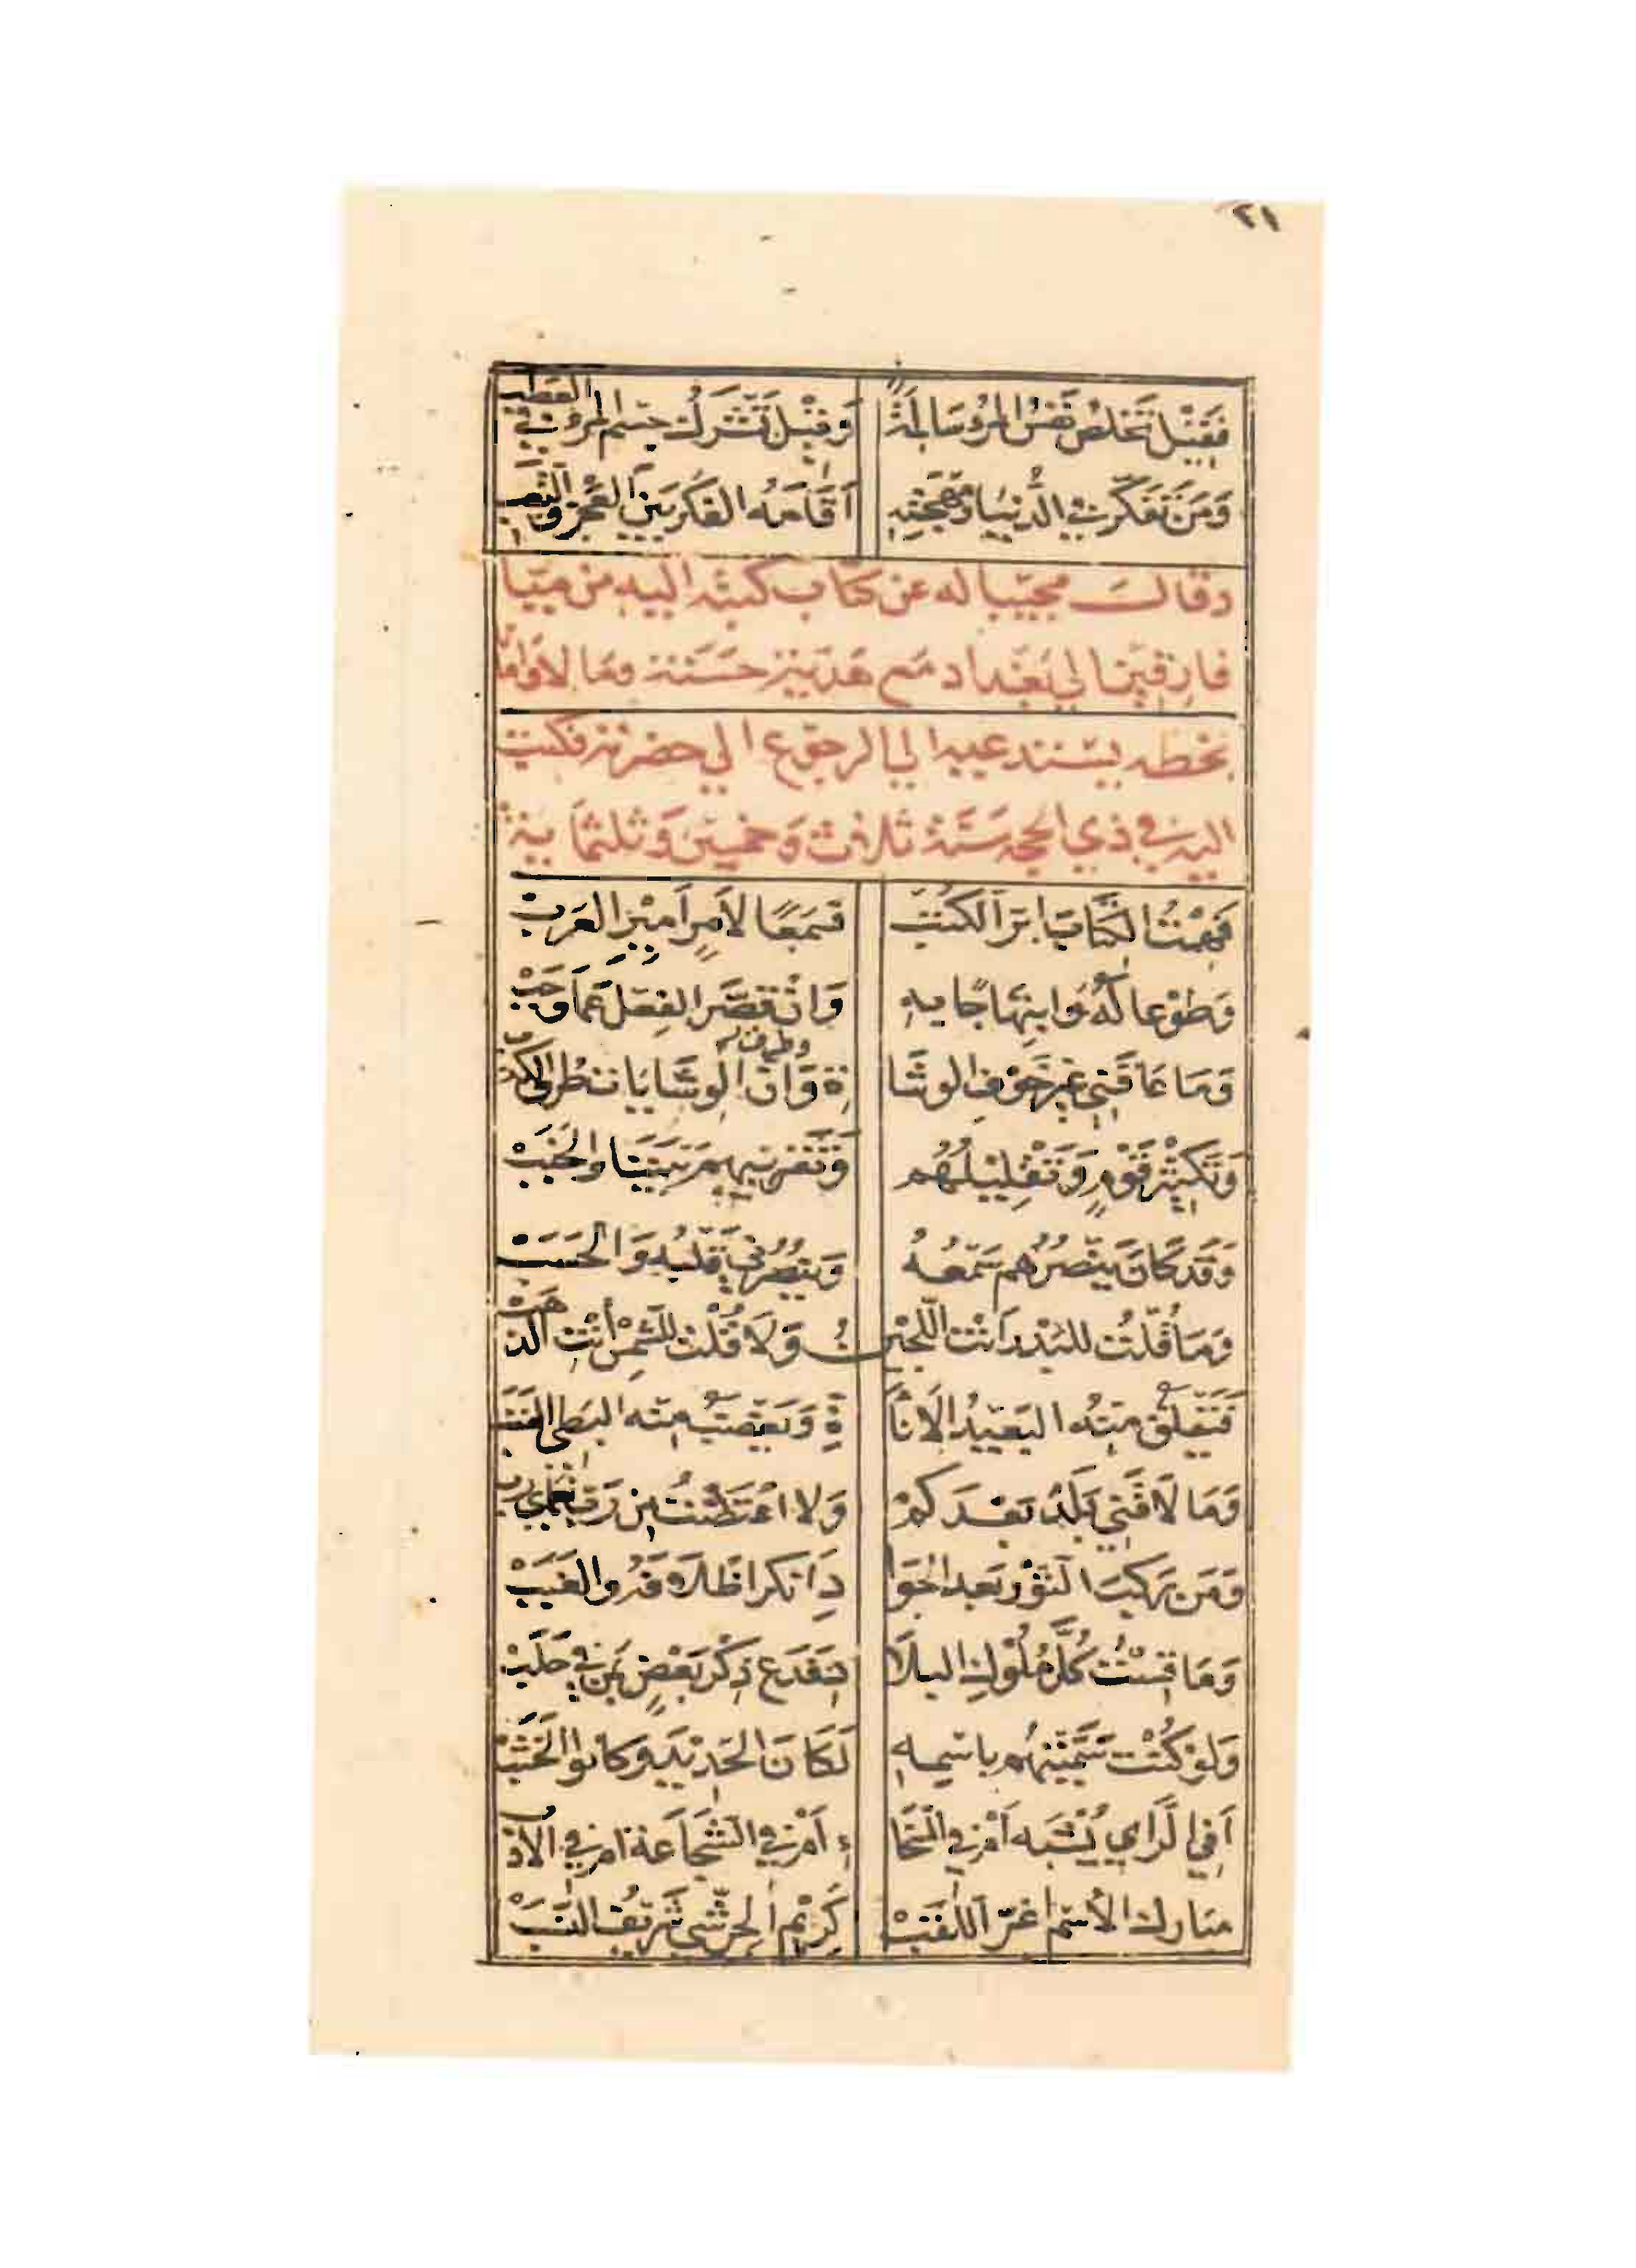 ٢١
فَقِيْلَ تَخْلُصُ نَفْسُ المَرْءِ سَالِمَةً وَقِيْلَ تَشْرَكُ جِسْمَ المَرْءِ في العَطَبِ
وَمَنْ تَفَكَّرَ فِي الدُّنْيَا وَمُهْجَتِهِ اَقَامَهُ الفِكْرُ بَيْنَ العَجْزِ وَالتَّعَبِ
وقال مجيبا له عن كتاب كتبه اليه من ميّا
فارقين الي بغداد مع هدية حسنة ومالا وافيا
بخطه يستدعيه الي الرجوع الي حضرته فكتب
اليه في ذي الحجه سنة ثلاث وخمسين وثلثماية
فَهِمْتُ الكِتَابَ ابَرَّ الكُتُبْ فَسَمْعًا لاَمْرِ اَمِيْرِ العَرَبْ
وَطَوْعا لَهُ وَابتِهَاجًا بِهِ وَاِنْ قَصَّرَ الفِعْلُ عَمَّا وَجَبْ
وَمَا عَاقَنِي غَيْرُ خَوْفِ الوشَا ةِ وَاِنَّ الوِشَايَا تنطُر الكذب
وَتَكثِيْرِ قَوْمٍ وَتَقْلِيْلِهُم وَتَقْرِيبِهِم بَيْنَنَا وَالخَبَبْ
وَقَدْ كَانَ يَنْصُرُهُم سَمْعُهُ وَيَنصُرُنِي قَلْبُهُ وَالحَسَبْ
وَمَا قُلْتُ للبَدْرِ اَنْتَ اللُّجَيْنُ وَلَا قُلْتُ لِلشَّمْسِ أَنْتِ الذَّهَبْ
فَيَقلَقَ مِنهُ البَعِيْدُ الاَنَا ةِ وَيَغضَبُ مِنه البَطِي الغَضَبْ
وَمَا لَاقَنِي بَلَدٌ بَعْدَكُمْ وَلا اعْتَضْتُ مِن رَبِّ نُعْمَاي رَب
وَمَن رَكِبَ الثَوْرَ بَعد الجَوَا دِ اَنكَرَ اظلَافَهُ والغَبَبْ
وَمَا قِسْتُ كُلَّ مُلُوكِ البِلَا دِ فَدَع ذِكْرَ بَعْضٍ بِمَن فِي حَلَبْ
وَلَوْ كُنْتُ سَمَّيْتُهُم بِاسْمِهِ لَكَانَ الحَدِيْدَ وَكَانوا الخَشَبْ
اَفِي الرَاي يُشْبَه اَمْ فِي السَّخَا ءِ اَمْ فِي الشَّجَاعَة ام فِي الاَدَب
مبَارك الاسْم اغَرّ اللَّقَبْ كَرِيْم الجِرِشّي شَرِيفُ النَّسَبْ